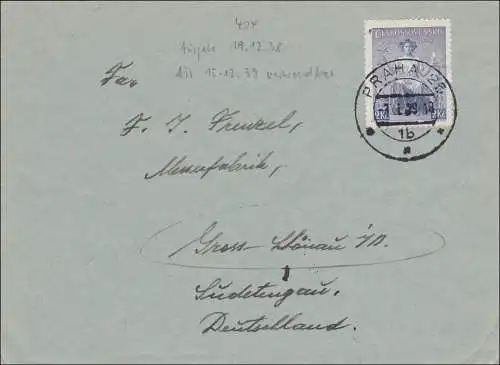 404
Ausgabe 19.12.38
Bis 15.12.39 verwendbar
ČESKOSLOVENSKO
2 Kč
PRAHA 25
-7.I.39-18
1b
Fa
F. J. Frenzel,
Messerfabrik,
Gross-Schönau i/B.
Sudetengau.
Deutschland.